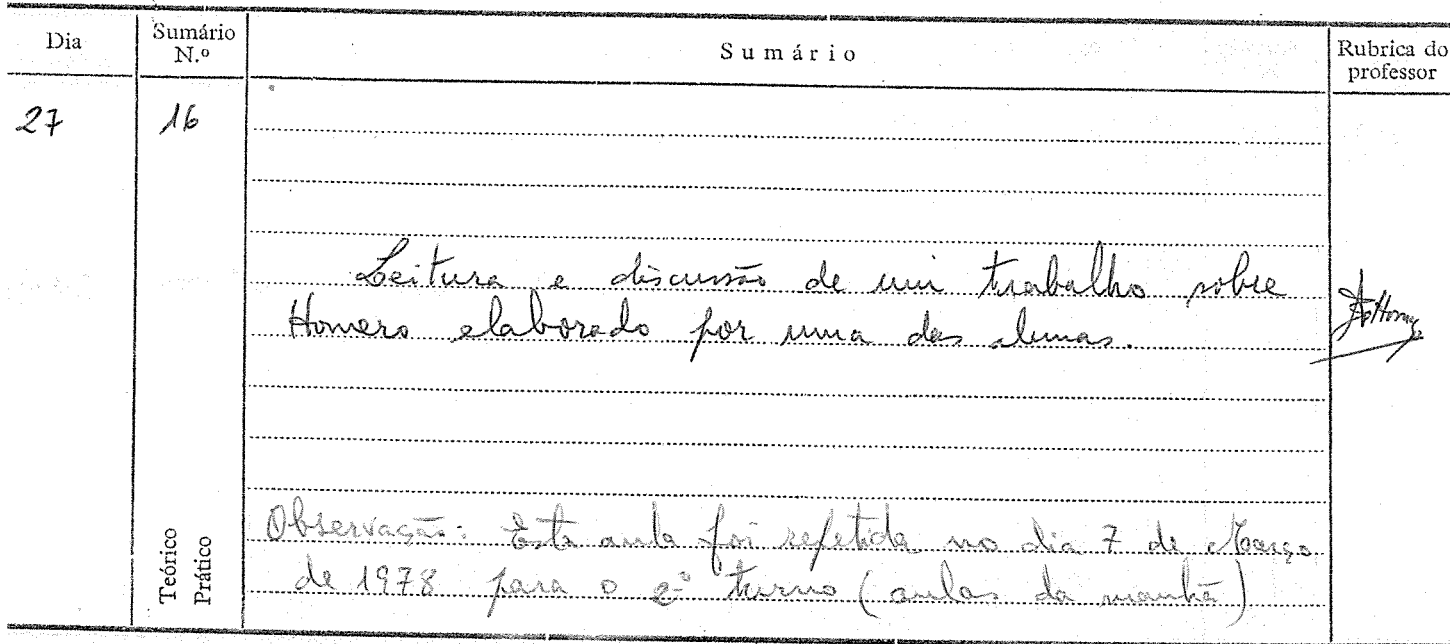 Dia
Sumário N.º
Sumário
Rubrica do professor
27
16
Leitura e discussão de um trabalho sobre
Homero elaborado por uma das alunas.
Teórico
Prático
Observação: Esta aula foi repetida no dia 7 de Março
de 1978 para o 2º turno (aulas da manhã)